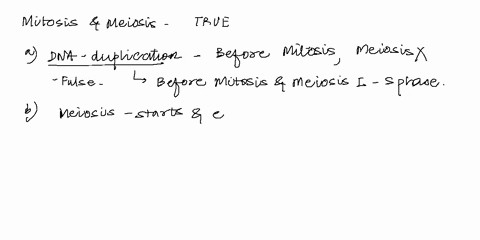 Mitosis & Meiosis - TRUE
a) DNA - duplication - Before Mitosis, Meiosis X
- False - ↳ Before Mitosis & Meiosis I - S phase.
b) Meiosis - starts & e